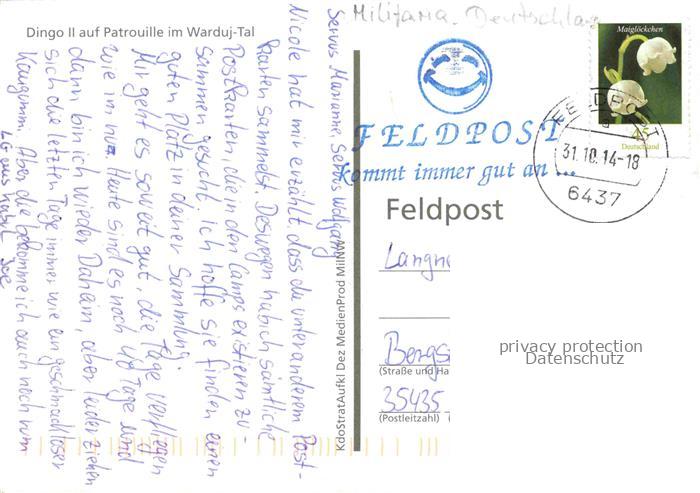 Dingo II auf Patrouille im Warduj-Tal
Servus Marianne, Servus Wolfgang
Nicole hat mir erzählt, dass du unter anderem Post-
karten sammelst. Deswegen hab ich sämtliche
Postkarten, die in den Camps existieren zu-
sammen gesucht. Ich hoffe sie finden einen
guten Platz in deiner Sammlung.
Mir geht es soweit gut, die Tage verfliegen
wie im nu. Heute sind es noch Tage und
dann bin ich wieder Daheim, aber leider ziehen
sich die letzten Tage immer wie ein geschmackloser
Kaugummi. Aber die bekomme ich auch noch rum
LG aus
KdoStratAufkl Dez MedienProd MilNW
Militaria - Deutschland
Maiglöckchen
45
Deutschland
FELDPOST
31.10.14-18
6437
FELDPOST
kommt immer gut an ...
Feldpost
Langn
Bergs
(Straße und Ha
35435
(Postleitzahl) (
privacy protection
Datenschutz